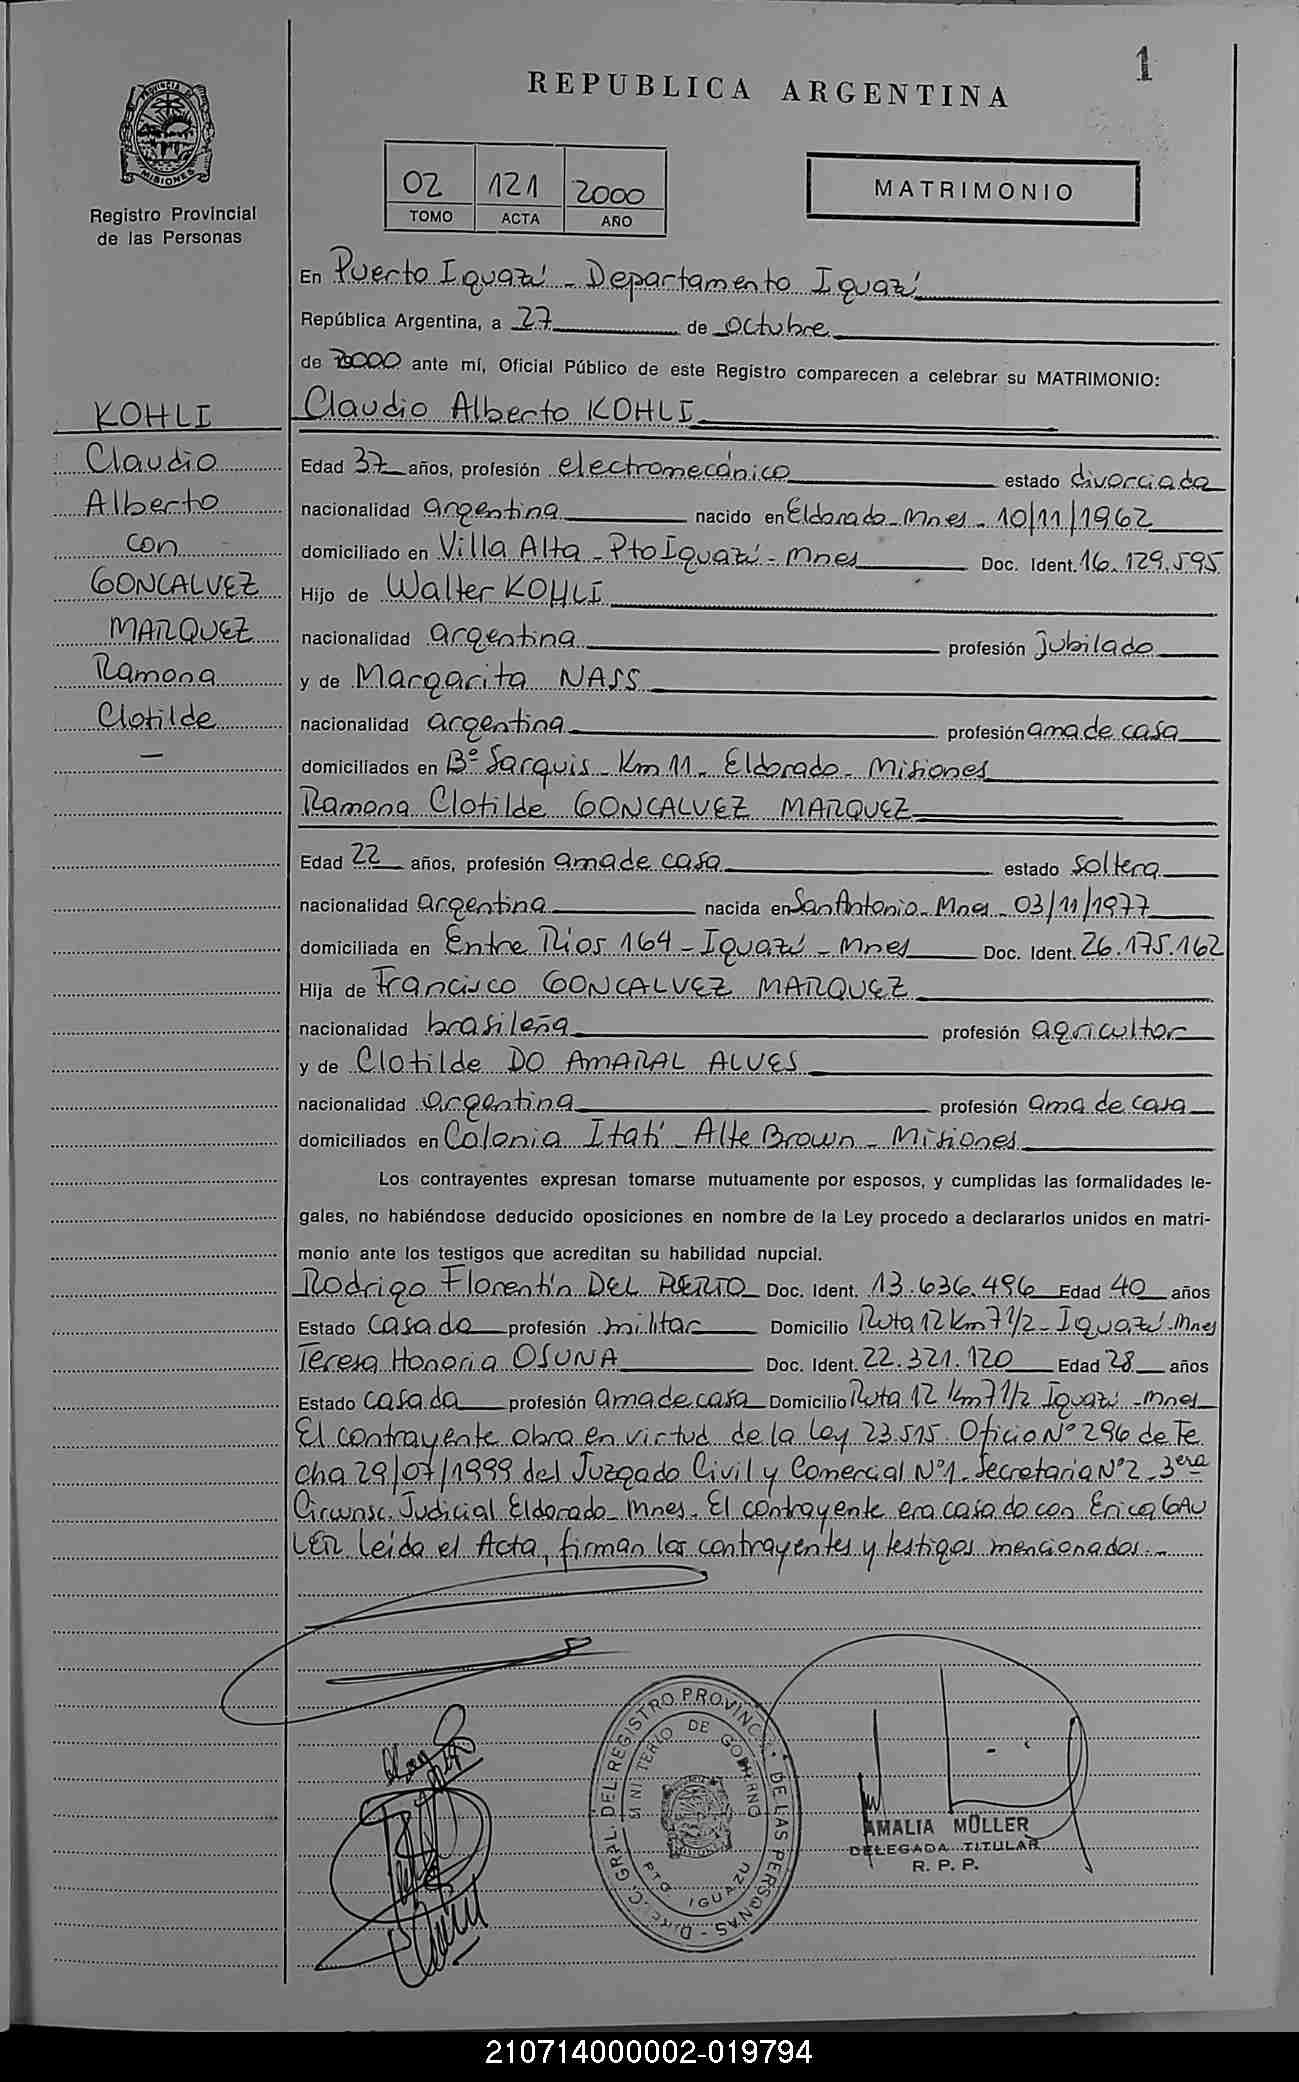 1
REPUBLICA ARGENTINA
PROVINCIA DE
MISIONES
Registro Provincial
de las Personas
02 121 2000
TOMO ACTA AÑO
MATRIMONIO
En Puerto Iguazú - Departamento Iguazú
República Argentina, a 27 de octubre
de 2000 ante mí, Oficial Público de este Registro comparecen a celebrar su MATRIMONIO:
KOHLI
Claudio
Alberto
con
GONCALVEZ
MARQUEZ
Ramona
Clotilde
—
Claudio Alberto KOHLI
Edad 37 años, profesión electromecánico estado divorciada
nacionalidad argentina nacido en Eldorado - Mnes - 10/11/1962
domiciliado en Villa Alta - Pto Iguazú - Mnes Doc. Ident. 16.129.595
Hijo de Walter KOHLI
nacionalidad argentina profesión jubilado
y de Margarita NASS
nacionalidad argentina profesión ama de casa
domiciliados en Bº Sarquis - Km 11 - Eldorado - Misiones
Ramona Clotilde GONCALVEZ MARQUEZ
Edad 22 años, profesión ama de casa estado soltera
nacionalidad argentina nacida en San Antonio - Mnes - 03/11/1977
domiciliada en Entre Rios 164 - Iguazú - Mnes Doc. Ident. 26.175.162
Hija de Francisco GONCALVEZ MARQUEZ
nacionalidad brasileña profesión agricultor
y de Clotilde DO AMARAL ALVES
nacionalidad argentina profesión ama de casa
domiciliados en Colonia Itatí - Alte Brown - Misiones
Los contrayentes expresan tomarse mutuamente por esposos, y cumplidas las formalidades le-
gales, no habiéndose deducido oposiciones en nombre de la Ley procedo a declararlos unidos en matri-
monio ante los testigos que acreditan su habilidad nupcial.
Rodrigo Florentín DEL Doc. Ident. 13.636.496 Edad 40 años
Estado casado profesión militar Domicilio Ruta 12 km 7 1/2 - Iguazú - Mnes
Teresa Honoria OSUNA Doc. Ident. 22.321.120 Edad 28 años
Estado casada profesión ama de casa Domicilio Ruta 12 km 7 1/2 Iguazú - Mnes
El contrayente obra en virtud de la Ley 23.515. Oficio Nº 296 de Fe
cha 29/07/1999 del Juzgado Civil y Comercial Nº1 - Secretaria Nº2 - 3era
Circunsc. Judicial Eldorado - Mnes. El contrayente era casado con Erica GAU
LER. Leida el Acta, firman los contrayentes y testigos mencionados. -
DIREC. GRAL. DEL REGISTRO PROVINC. DE LAS PERSONAS
MINISTERIO DE GOBIERNO
PTO IGUAZU
AMALIA MÜLLER
DELEGADA TITULAR
R. P. P.
210714000002-019794